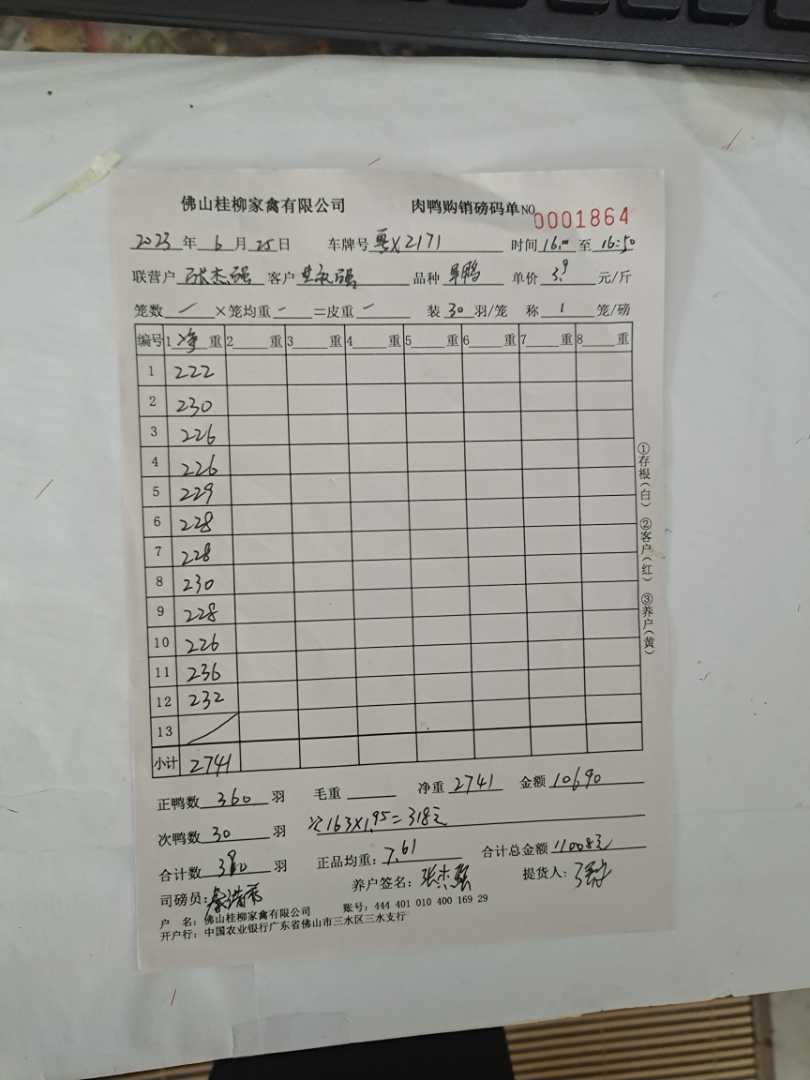 佛山桂柳家禽有限公司 肉鸭购销磅码单 NO 0001864
2023 年 6 月 25 日 车牌号 粤X2171 时间 16.00 至 16:50
联营户 张杰强 客户 品种 旱鸭 单价 3.9 元/斤
笼数 一 ×笼均重 一 =皮重 一 装 30 羽/笼 称 1 笼/磅
编号 1 净 重 2 重 3 重 4 重 5 重 6 重 7 重 8 重
1 222
2 230
3 226
4 226
5 229
6 228
7 228
8 230
9 228
10 226
11 236
12 232
13
小计 2741
①存根(白) ②客户(红) ③养户(黄)
正鸭数 360 羽 毛重 净重 2741 金额 10690
次鸭数 30 羽 次163×1.95=318元
合计数 390 羽 正品均重: 7.61 合计总金额 11008元
司磅员: 养户签名: 张杰强 提货人:
户 名: 佛山桂柳家禽有限公司 账号: 444 401 010 400 169 29
开户行: 中国农业银行广东省佛山市三水区三水支行